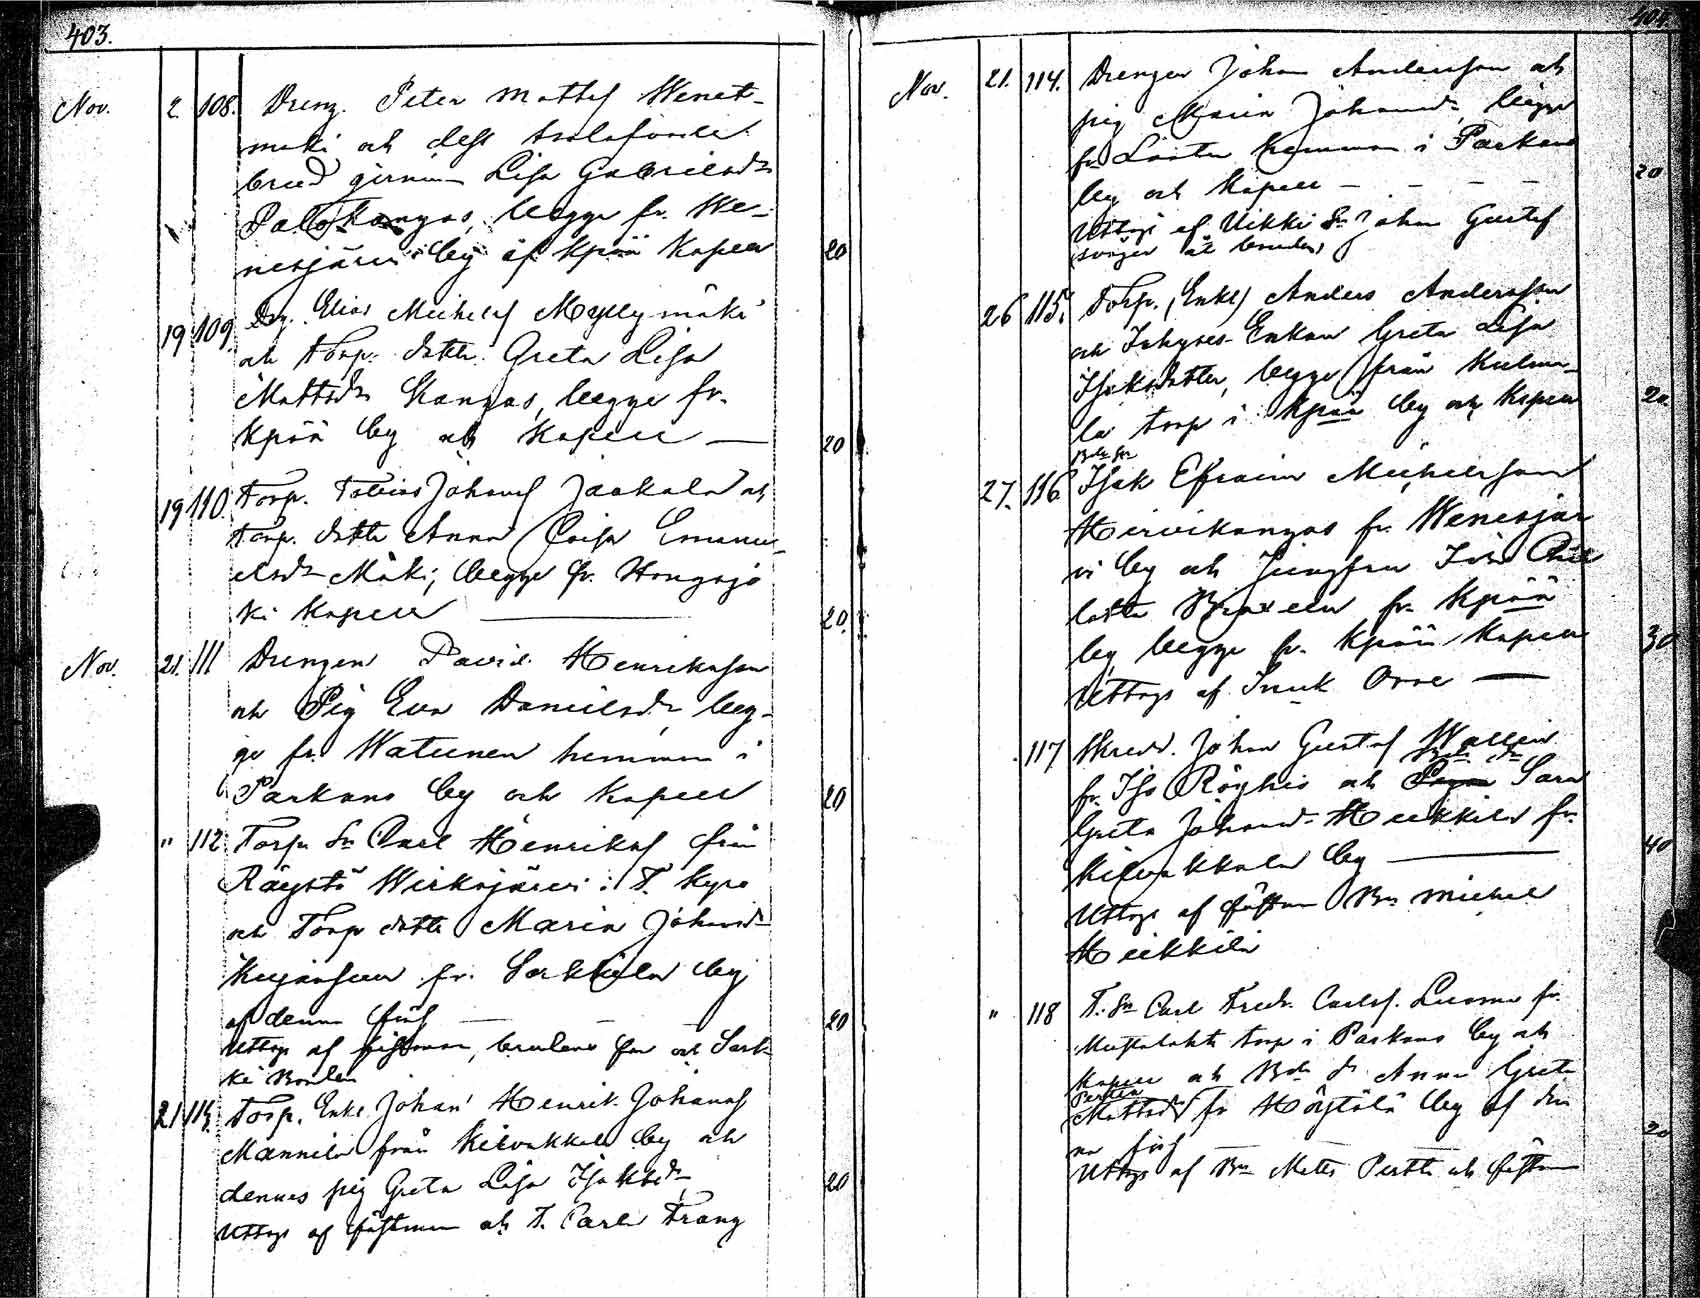 403.
Nov. 2 108. Dreng. Peter Mattsf Wenet-
mäki och dess trolofvade
brud qvinn Lisa Gabrielsdr
Palokangas, begge fr. We-
nesjärvi by af Kpää Kapell 20
19 109. Dr. Elias Michelsf Myllymäki
och Torp. dottr. Greta Lisa
Mattsdr Kangas, begge fr.
Kpää by och Kapell — 20
19 110. Torp. Tobias Johansf Jaakola och
Torp. dottr Anna Caisa Emanu-
elsdr Mäki, begge fr. Hongojo
ki Kapell — 20
Nov. 21. 111 Drengen David Henriksson
och Pig Eva Danielsdr, beg-
ge fr. Watunen hemman i
Parkano by och Kapell 20
" 112 Torp. Sn Carl Henriksf från
Röystö Wirksjärvi i T. Kyro
och Torp dottr Maria Johansdr
fr. Sarkkila by
af denna förs — 20
Uttogs af fästman, brudens far och Sark-
ki Bonden
21 113. Torp. Enkl. Johan Henrik Johansf
Mannila från Kilvakkala by och
dennes pig Greta Lisa Isaksdr 20
Uttogs af fästman och T. Carl Franz
404.
Nov. 21. 114. Drengen Johan Andersson och
pig Maria Johansdr, begge
fr hemman i Parkano 20
by och Kapell — - - -
Uttogs af Uikki Sn Johan Gustaf
(svåger åt bruden)
26 115. Torp. (Enkl) Anders Andersson
och Inhyses Enkan Greta Lisa
Isaksdotter, begge från Kulma- 20.
la torp i Kpää by och Kapell
Bde Sn
27. 116 Isak Efraim Michelsson
Hirvikangas fr. Wenesjär
vi by och Jungfru Ida Char
lotta fr. Kpää
by begge fr. Kpää Kapell 30
Uttogs af —
117 Skredd. Johan Gustaf Wallin
Bde dr
fr. Iso Röyhiö och Sara
Greta Johansdr Heikkilä fr.
Kilvakkala by — 40
Uttogs af fästman Bn Michel
Heikkilä
" 118 T. Sn Carl Fredr. Carlsf. Luoma fr.
Mustalahti torp i Parkano by och
Kapell och Bde dr Anna Greta
Perttu
Mattsdr fr Höytölä by af den
na förs — 20
Uttogs af Bn Matts Perttu och fästman